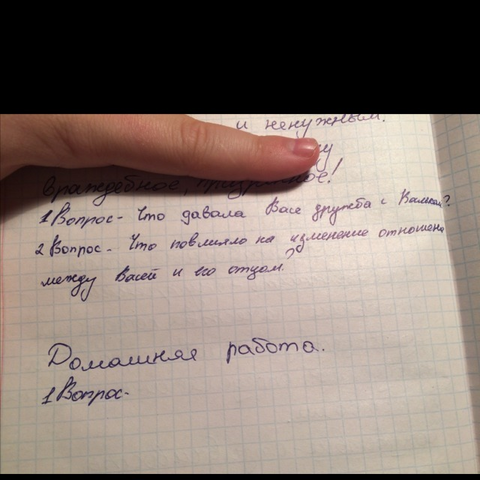 и ненужным.
враждебное,
1 Вопрос - Что давала Васе дружба с Вальком?
2 Вопрос - Что повлияло на изменение отношени
между Васей и его отцом?
Домашняя работа.
1 Вопрос-